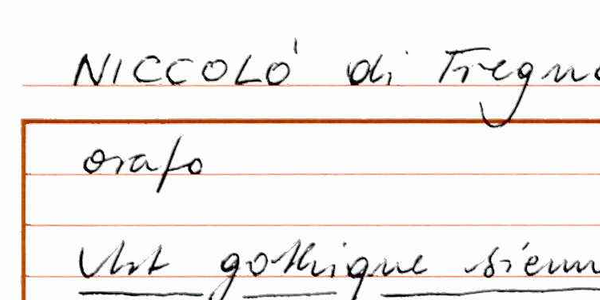 NICCOLÒ di Tregno
orafo
L'Art gothique sienn